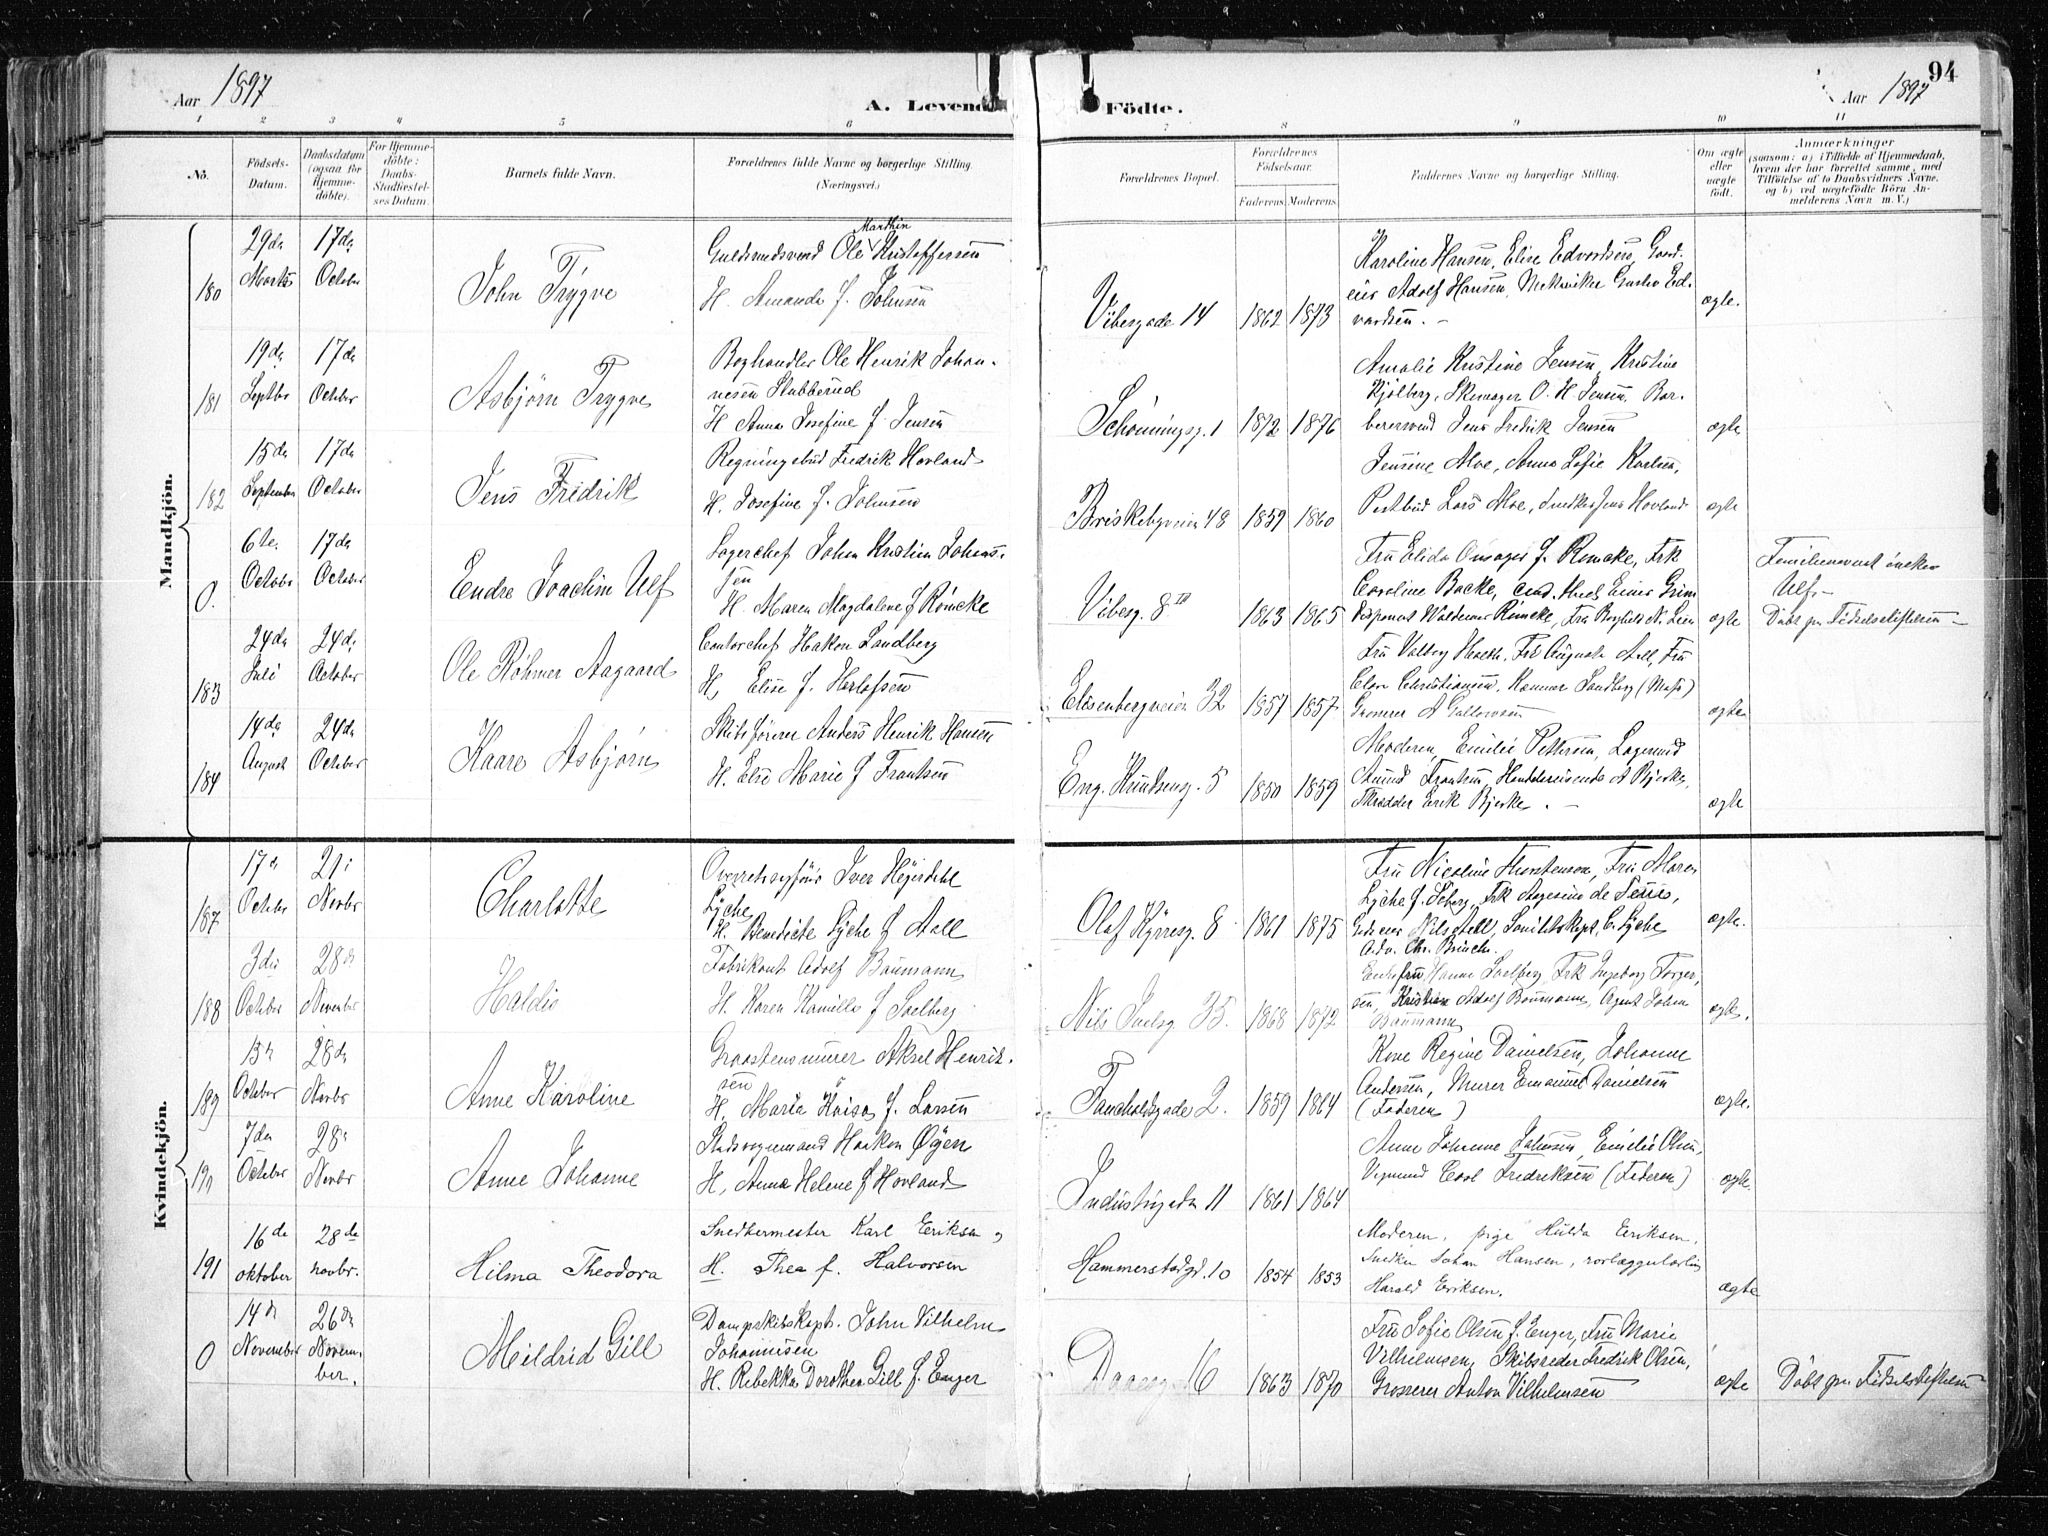 Aar 1897
A. Levende Födte.
Aar 1897
94
1 2 3 4 5 6 7 8 9 10 11
No.
Födsels-
Datum.
Daabsdatum
(ogsaa for
Hjemme-
döbte).
For Hjemme-
döbte:
Daabs-
Stadfæstel-
ses Datum.
Barnets fulde Navn.
Forældrenes fulde Navne og borgerlige Stilling.
(Næringsvei.)
Forældrenes Bopæl.
Forældrenes
Födselsaar.
Faderens. Moderens.
Faddernes Navne og borgerlige Stilling.
Om ægte
eller
uægte
födt.
Anmærkninger
(saasom: a) i Tilfælde af Hjemmedaab,
hvem der har forrettet samme, med
Tilföielse af to Daabsvidners Navne,
og b) ved uægtefödte Börn An-
melderens Navn m. V.)
Mandkjön.
180
29de
Marts
17de
October
John Trygve
Guldsmedsvend Ole Marthin Kristoffersen
H. Amanda f. Johnsen
Vibesgade 14
1862 1873
Karoline Hansen, Elise Edvardsen, Gaard-
eier Adolf Hansen, Mekaniker Gustav Ed-
vardsen. -
ægte.
181
19de
Septbr
17de
October
Asbjørn Trygve
Boghandler Ole Henrik Johan-
nesen Stubberud
H. Anna Josefine f. Jensen
Schöningsg. 1
1872 1876
Amalie Kristine Jensen, Kristine
Kjølberg, Skomager O. H. Jensen, Bar-
berersvend Jens Fredrik Jensen
ægte
182
15de
September
17de
October
Jens Fredrik
Regningsbud Fredrik Hovland
H. Josefine f. Johnsen
Briskebyveien 48
1859 1860
Jensine Moe, Anna Sofie Karlsen,
Postbud Lars Moe, Snedker Jens Hovland
ægte
0.
6te
October
17de
October
Endre Joachim Ulf
Lagerchef Johan Kristian Johans-
sen
H. Maren Magdalene f Römcke
Vibesg. 8
1863 1865
Fru Elida Onsager f. Römcke, Frk
Caroline Backe, cand.
Disponent Waldemar Römcke, Fru
ægte
Familienavnet ønskes
Ulf. -
Döbt pr Födselsstiftelsen -
183
24de
Juli
24de
October
Ole Röhmer Aagaard
Contorchef Hakon Sandberg
H. Elise f. Herlofsen
Elisenbergveien 32
1857 1857
Fru Valborg Fru Augusta Aall, Fru
Clara Christiansen, Sandberg
Grosserer A Gulowsen
ægte
184
14de
August
24de
October
Kaare Asbjørn
Skibsförer Anders Henrik Hansen
H. Else Marie f Frantsen
Eng. Knudseng. 5
1850 1859
Moderen, Emilie Pettersen, Lagermd
Amund Frantsen, Handelsreisende A Bjerke,
Skrædder Erik Bjerke. -
ægte
Kvindekjön.
187
17de
October
21.
Novbr
Charlotte
Overretssagförer Iver Heyerdahl
Lyche
H. Benedicte Lyche f Aall
Olaf Kyrresg. 8
1861 1875
Fru Nicoline Thorstensen, Fru Maren
Lyche f. Frk de
Nils Aall, C. Lyche
Adv. Chr. Bruch.
ægte.
188
3die
October
28de
November
Haldis
Fabrikant Adolf Baumann
H. Karen Kamilla f Soelberg
Nils Juelsg 35.
1868 1872
Enkefru Hanna Soelberg, Frk Ingeborg Torger-
sen, Kristian Adolf Baumann, Agent Johan
Baumann
ægte.
189
15de
October
28de
Novbr
Anne Karoline
Graastensmurer Aksel Henrik-
sen
H. Maria Kaisa f. Larsen
Fauchaldsgade 2.
1859 1864
Kone Regine Danielsen, Johanne
Andersen, Murer Emanuel Danielsen
(Faderen)
ægte.
190
7de
October
28de
Novbr
Anne Johanne
Stadsvognmand Haakon Øyen
H. Anna Helene f Hovland
Industrigaden 11
1861 1864
Anne Johanne Johnsen, Emilie Olsen,
Vognmand Carl Fredriksen (Faderen)
ægte
191
16de
oktober
28de
novbr.
Hilma Theodora
Snedkermester Karl Eriksen,
H. Thea f. Halvorsen
Hammerstadgd. 10
1854 1853
Moderen, pige Hulda Eriksen,
Snedker Johan Hansen, rørlæggerlærling
Harald Eriksen.
ægte
0
14de
November
26de
Novem-
ber.
Mildrid Gill
Dampskibskapt. John Vilhelm
Johannesen
H. Rebekka Dorothea Gill f. Enger
Daasg 16
1863 1870
Fru Sofie Olsen f. Enger, Fru Marie
Vilhelmsen, Skibsreder Fredrik Olsen,
Grosserer Anton Vilhelmsen
ægte
Döbt pr Födselsstiftelsen